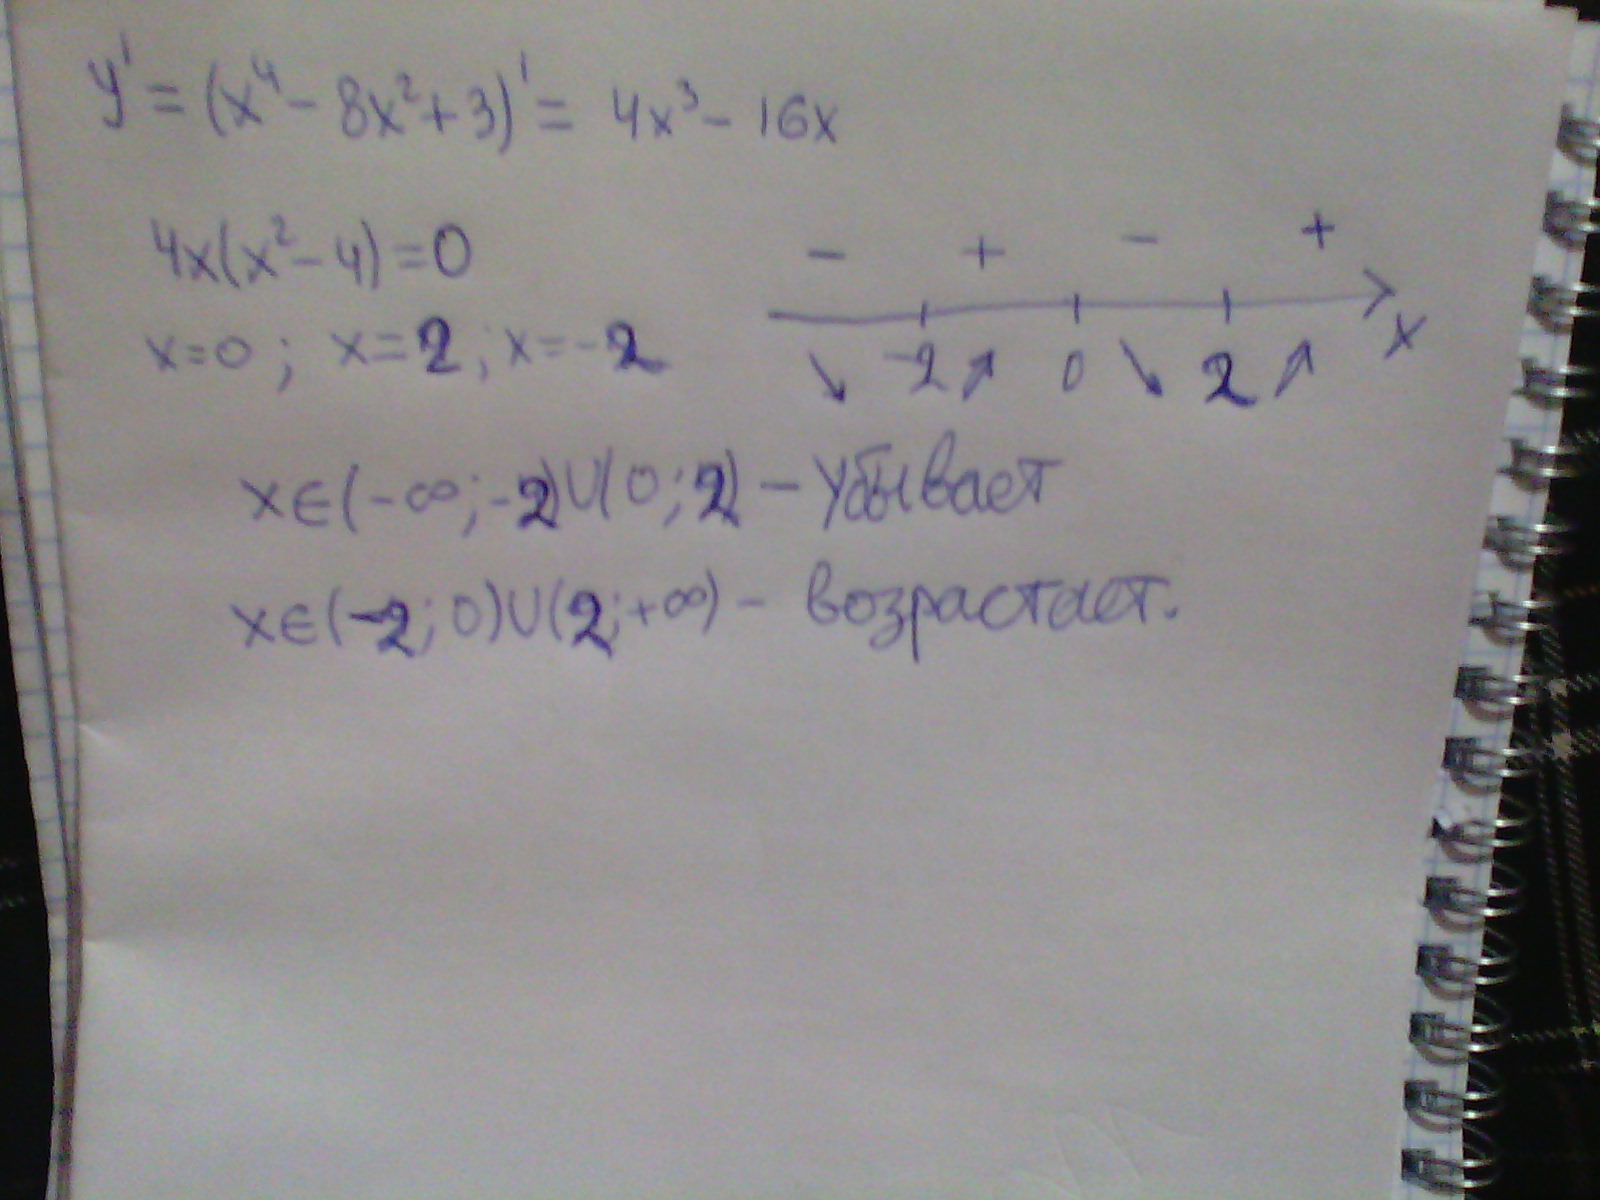 y' = (x⁴ - 8x² + 3)' = 4x³ - 16x
4x(x² - 4) = 0
x=0; x=2; x=-2
- + - +
-2 0 2 x
↘ ↗ ↘ ↗
x∈(-∞; -2)∪(0; 2) - убывает
x∈(-2; 0)∪(2; +∞) - возрастает.